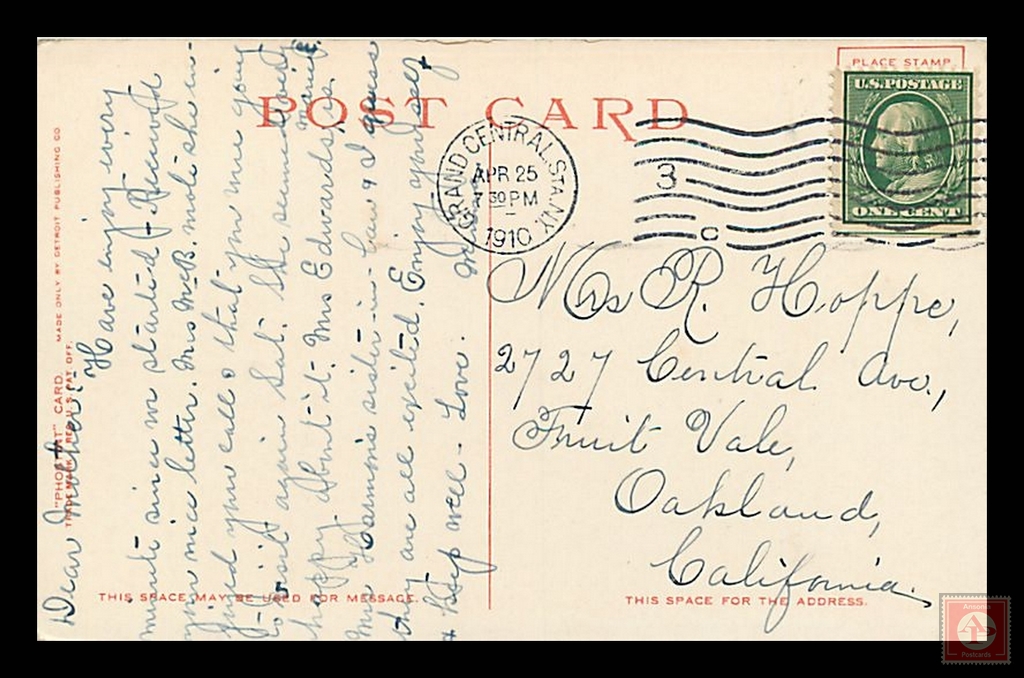 PLACE STAMP
U.S. POSTAGE
ONE CENT
POST CARD
GRAND CENTRAL STA. N.Y.
APR 25
7 30 PM
1910
3
C
"PHOSTINT" CARD. MADE ONLY BY DETROIT PUBLISHING CO.
TRADE MARK REG. U.S. PAT. OFF.
Dear Mother:-
Have enjoy every
minute since started. Received
your nice letter. Mrs McB. notes she in-
joyed your call & that you are going
to visit again Sat. She seemed very
happy about it. Mrs Edwards is
Mrs Harmon's sister-in-law & I guess
they are all excited. Enjoy yourself
& keep well - Love.
THIS SPACE MAY BE USED FOR MESSAGE.
Mrs R. Hoppe,
2727 Central Ave.,
Fruit Vale,
Oakland,
California.
THIS SPACE FOR THE ADDRESS.
Postcards